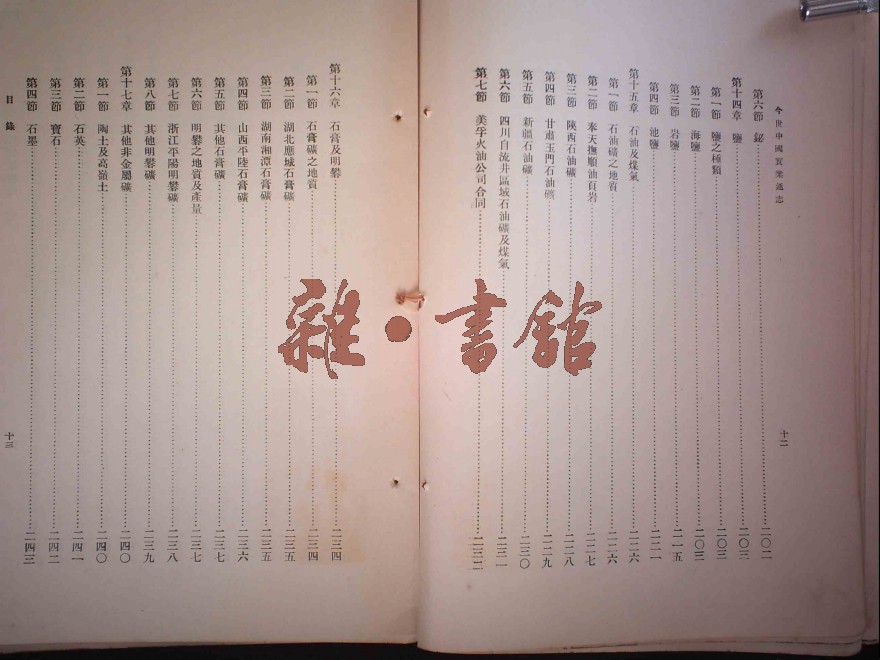 今世中國實業通志
十二
第六節 鉍……二〇二
第十四章 鹽……二〇三
第一節 鹽之種類……二〇三
第二節 海鹽……二〇三
第三節 岩鹽……二一五
第四節 池鹽……二二一
第十五章 石油及煤氣……二二六
第一節 石油礦之地質……二二六
第二節 奉天撫順油頁岩……二二七
第三節 陝西石油礦……二二八
第四節 甘肅玉門石油礦……二二九
第五節 新疆石油礦……二三〇
第六節 四川自流井區域石油礦及煤氣……二三一
第七節 美孚火油公司合同……二三二
第十六章 石膏及明礬……二三四
第一節 石膏礦之地質……二三四
第二節 湖北應城石膏礦……二三五
第三節 湖南湘潭石膏礦……二三五
第四節 山西平陸石膏礦……二三六
第五節 其他石膏礦……二三七
第六節 明礬之地質及產量……二三七
第七節 浙江平陽明礬礦……二三八
第八節 其他明礬礦……二三九
第十七章 其他非金屬礦……二四〇
第一節 陶土及高嶺土……二四〇
第二節 石英……二四一
第三節 寶石……二四二
第四節 石墨……二四三
目錄
十三
雜·書館